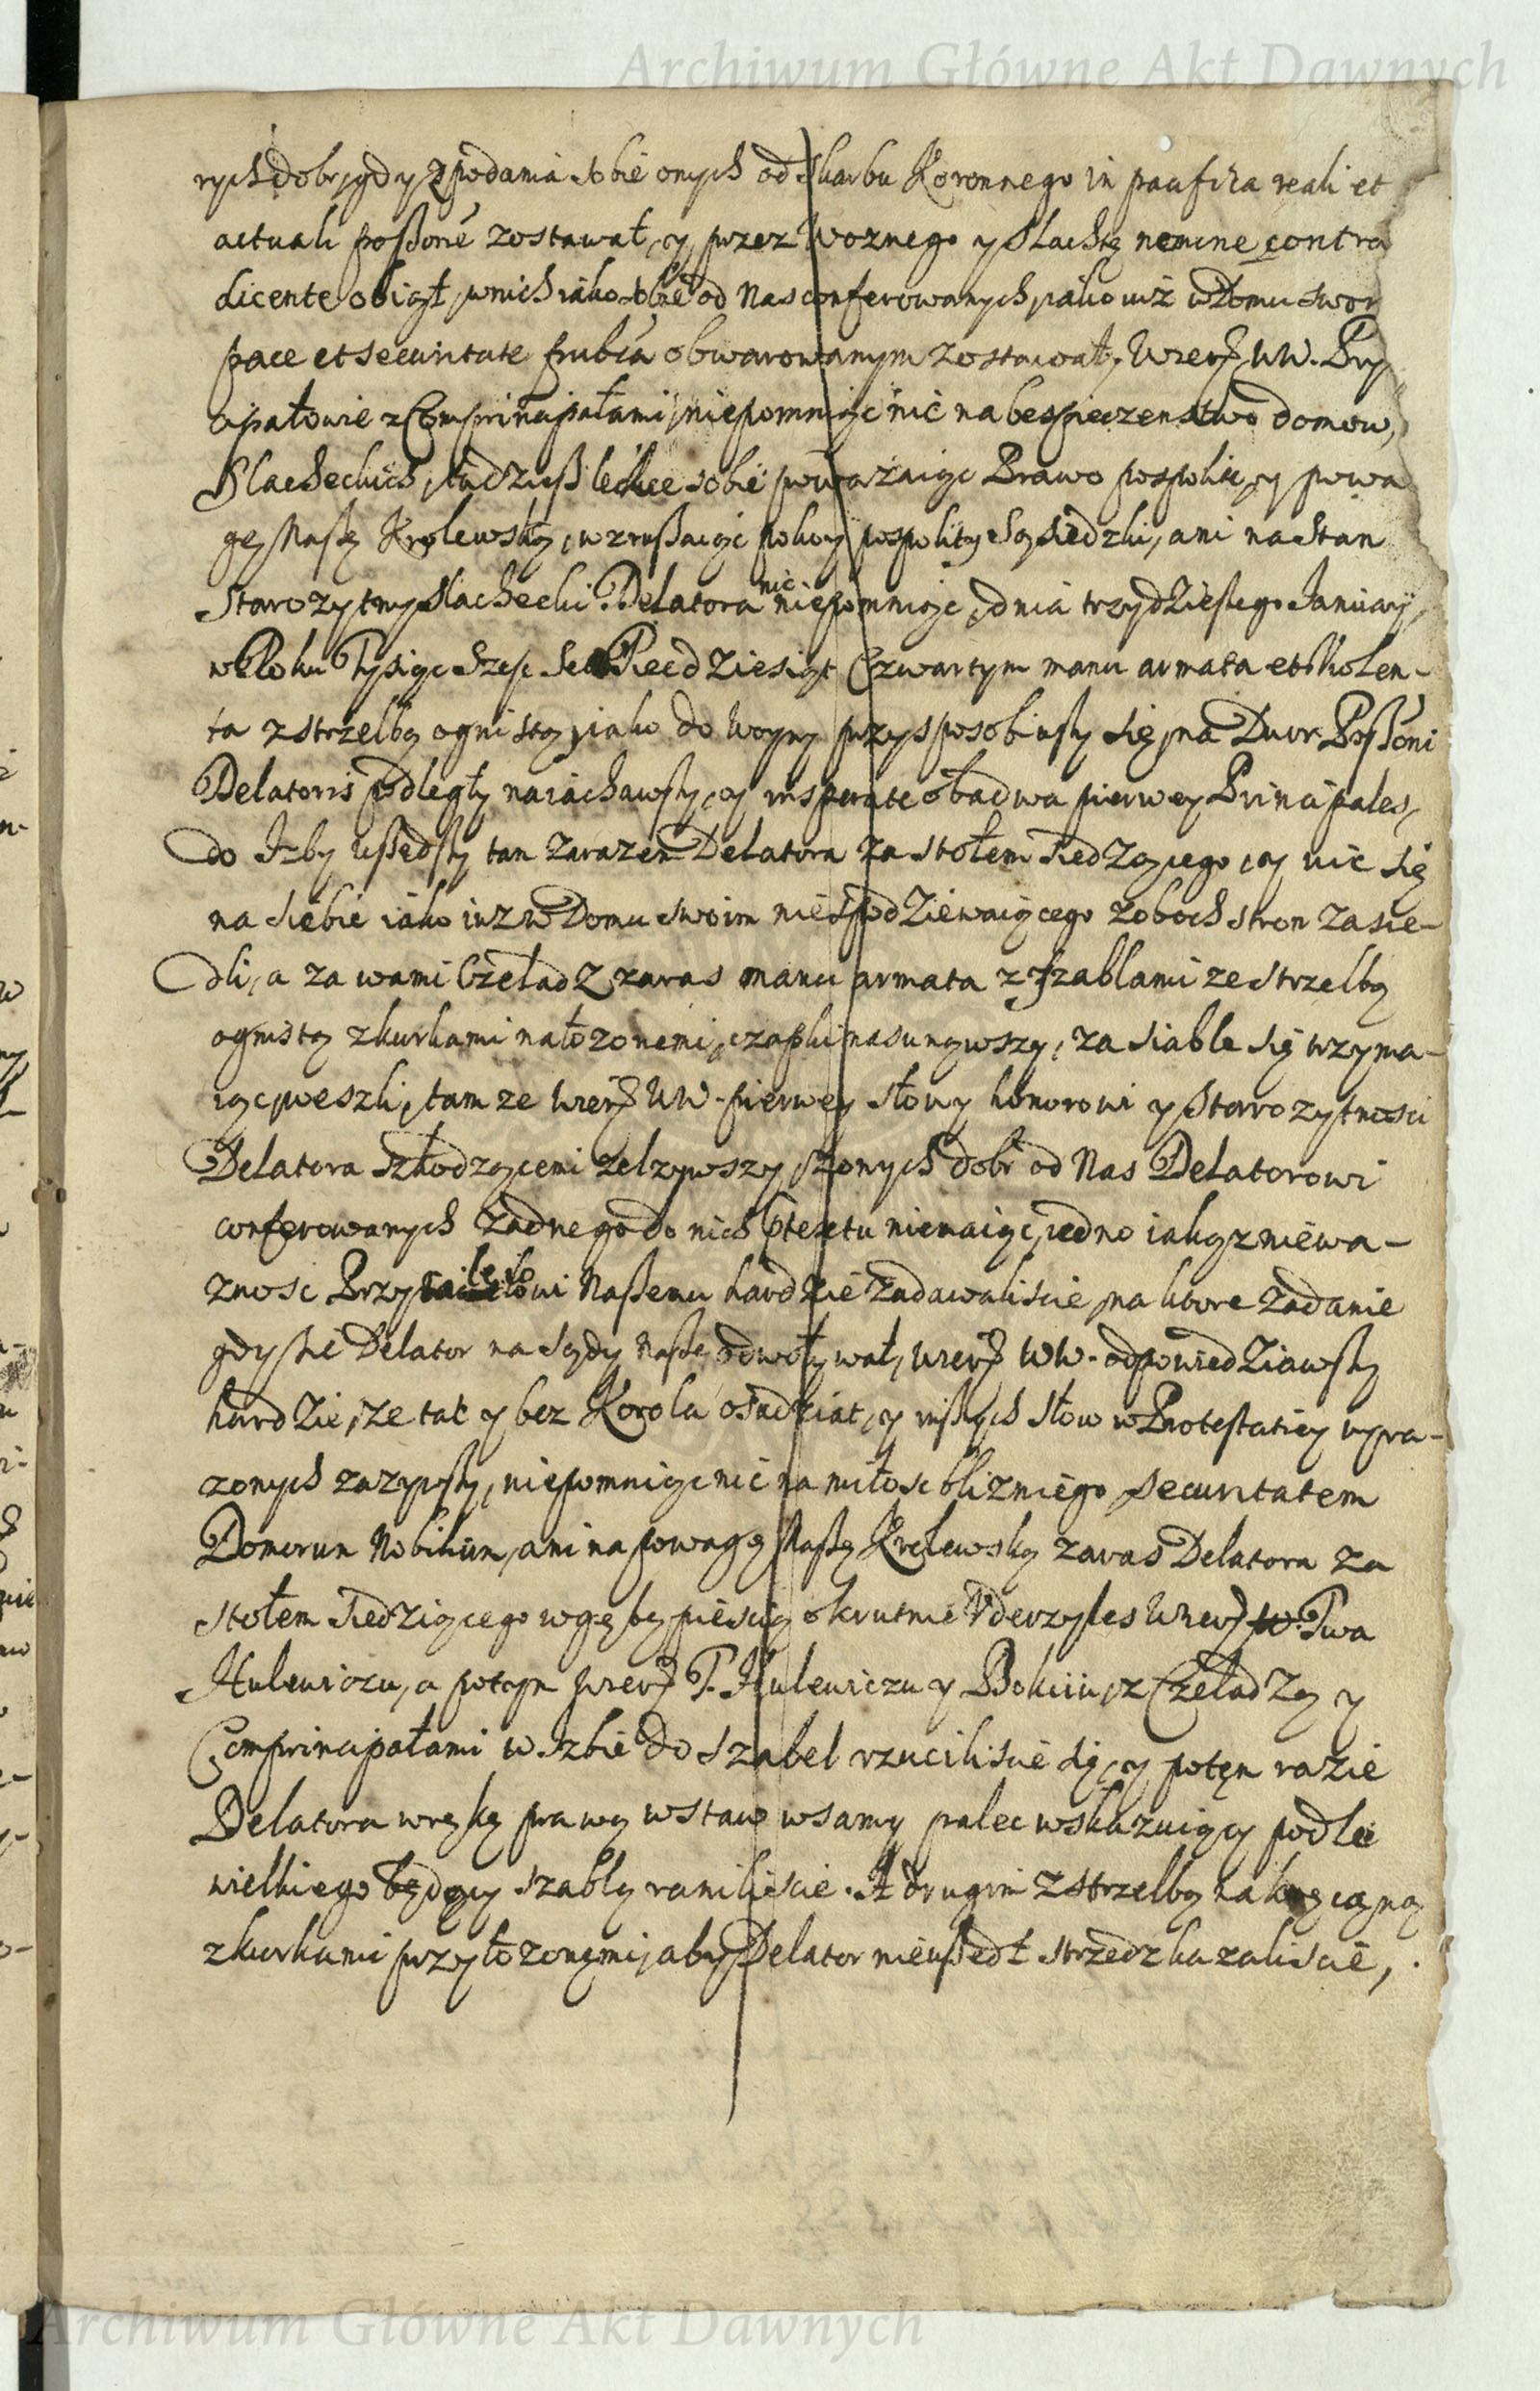 Archiwum Główne Akt Dawnych
rych dobr, gdy z podania sobie onych od Skarbu Koronnego in pacifica reali et
actuali possone zostawał, y przez Woznego y Slachtę nemine contra
dicente obiął, w nich iako sobie od Nas conferowanych, iako iuż w Domu swor
pace et securitate publca obwarowanym zostawał, Wierz. WW. Pry
cipałowie z Comprincipałami, niepomniąc nic na bespieczenstwo domow,
Slacheckich, tudzieß lekce sobie poważaiąc Prawo pospolite, y powa
gę Naßę Krolewską, wzrußaiąc pokoy pospolity Sąsiedzki, ani na Stan
Starozytny Slachecki Delatora nic niepomniąc, dnia trzydziestego January,
w Roku Tysiąc Szesc Set Piecdziesiąt Czwartym manu armata et violen-
ta z strzelbą ognistą, iako do Woyny przysposobiwßy się, na Dwor Possoni
Delatoris podległy naiachawßy, y insperate obadwa pierwey Principales,
do Izby wßedßy tam zarazem Delatora za stołem siedzącego, y nic się
na siebie iako iuz w Domu swoim niespodziewaiącego z oboch stron zasie-
dli, a za wami Czeladz zaras manu armata z Szablami ze strzelbą
ognistą z kurkami nałozonemi, czapki nasunąwszy, za siable się trzyma-
iąc, weszli, tamze Wierz. WW. pierwey słowy honorowi y Starozytnosci
Delatora szkodzącemi zelzywszy, z onych dobr od Nas Delatorowi
conferowanych zadnego do nich ptextu niemaiąc, iedno iakąz niewa-
znosc Przywileiowi Naßemu hardzie zadawaliscie, na ktore zadanie
gdy sie Delator na Sądy Naße odwoływał, Wierz. WW. odpowiedziawßy
hardzie, ze tac y bez Krola osadziat, y inßych słow w Protestatiey wyra-
zonych zazywßy, niepomniąc nic na miłosc blizniego, securitatem
Domorum Nobilium, ani na powagę Naßę Krolewską zaras Delatora za
stołem siedziącego w gębę pięscią okrutnie Vderzyłes Wierz. Pwa
Hulewiczu, a potym Wierz. P. Hulewiczu y Bokiiu, z Czeladzą y
Comprincipałami w Izbie do szabel rzuciliscie się, y potęm razie
Delatora w rękę prawą w staw w samy palec wskazuiący podle
wielkiego będący szablą raniliscie. A drugim z strzelbą
z kurkami przyłozonymi, aby Delator nieußedł strzedz kazaliscie,
Archiwum Główne Akt Dawnych